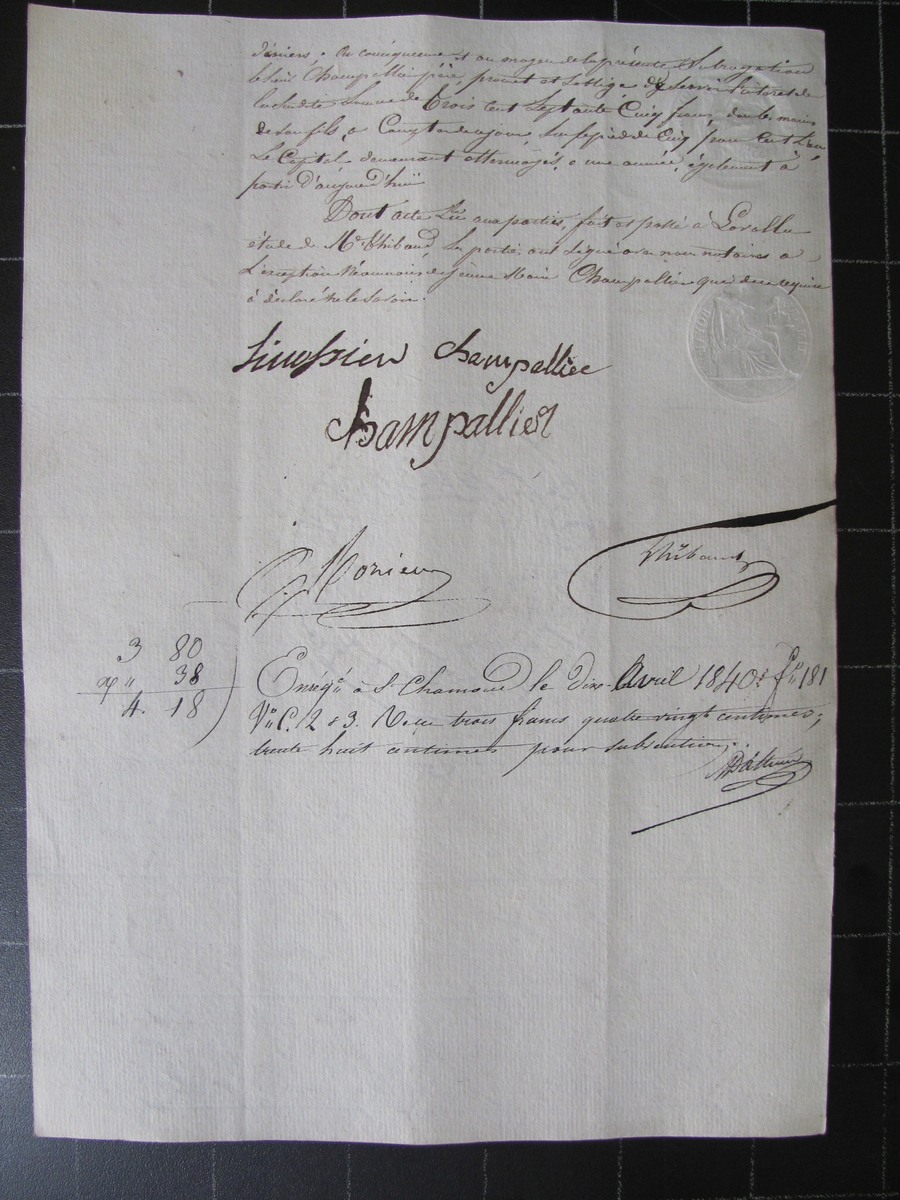 deniers. En conséquence et au moyen de la présente subrogation
le sieur Champallier père, promet et s'oblige de servir l'intéret de
la susdite somme de trois cent septante cinq francs, dans les mains
de son fils, à compter de ce jour, sur le pied de cinq pour cent l'an
Le Capital demeurant atermoyé à une année également à
partir d'aujourd'hui
Dont acte Lu aux parties, fait et passé à
étude de Me Thibaud, Les parties ont signé avec nous notaires à
L'exception néanmoins de Champallier que de ce requise
à déclaré ne le savoir.
champallier
champallier
Morier
Thibaud
3 80
" 38
4. 18
Enregé à St Chamond le dix Avril 1840 fo 181
Vo C. 2 & 3. Reçu trois francs quatre vingt centimes;
trente huit centimes pour subvention;